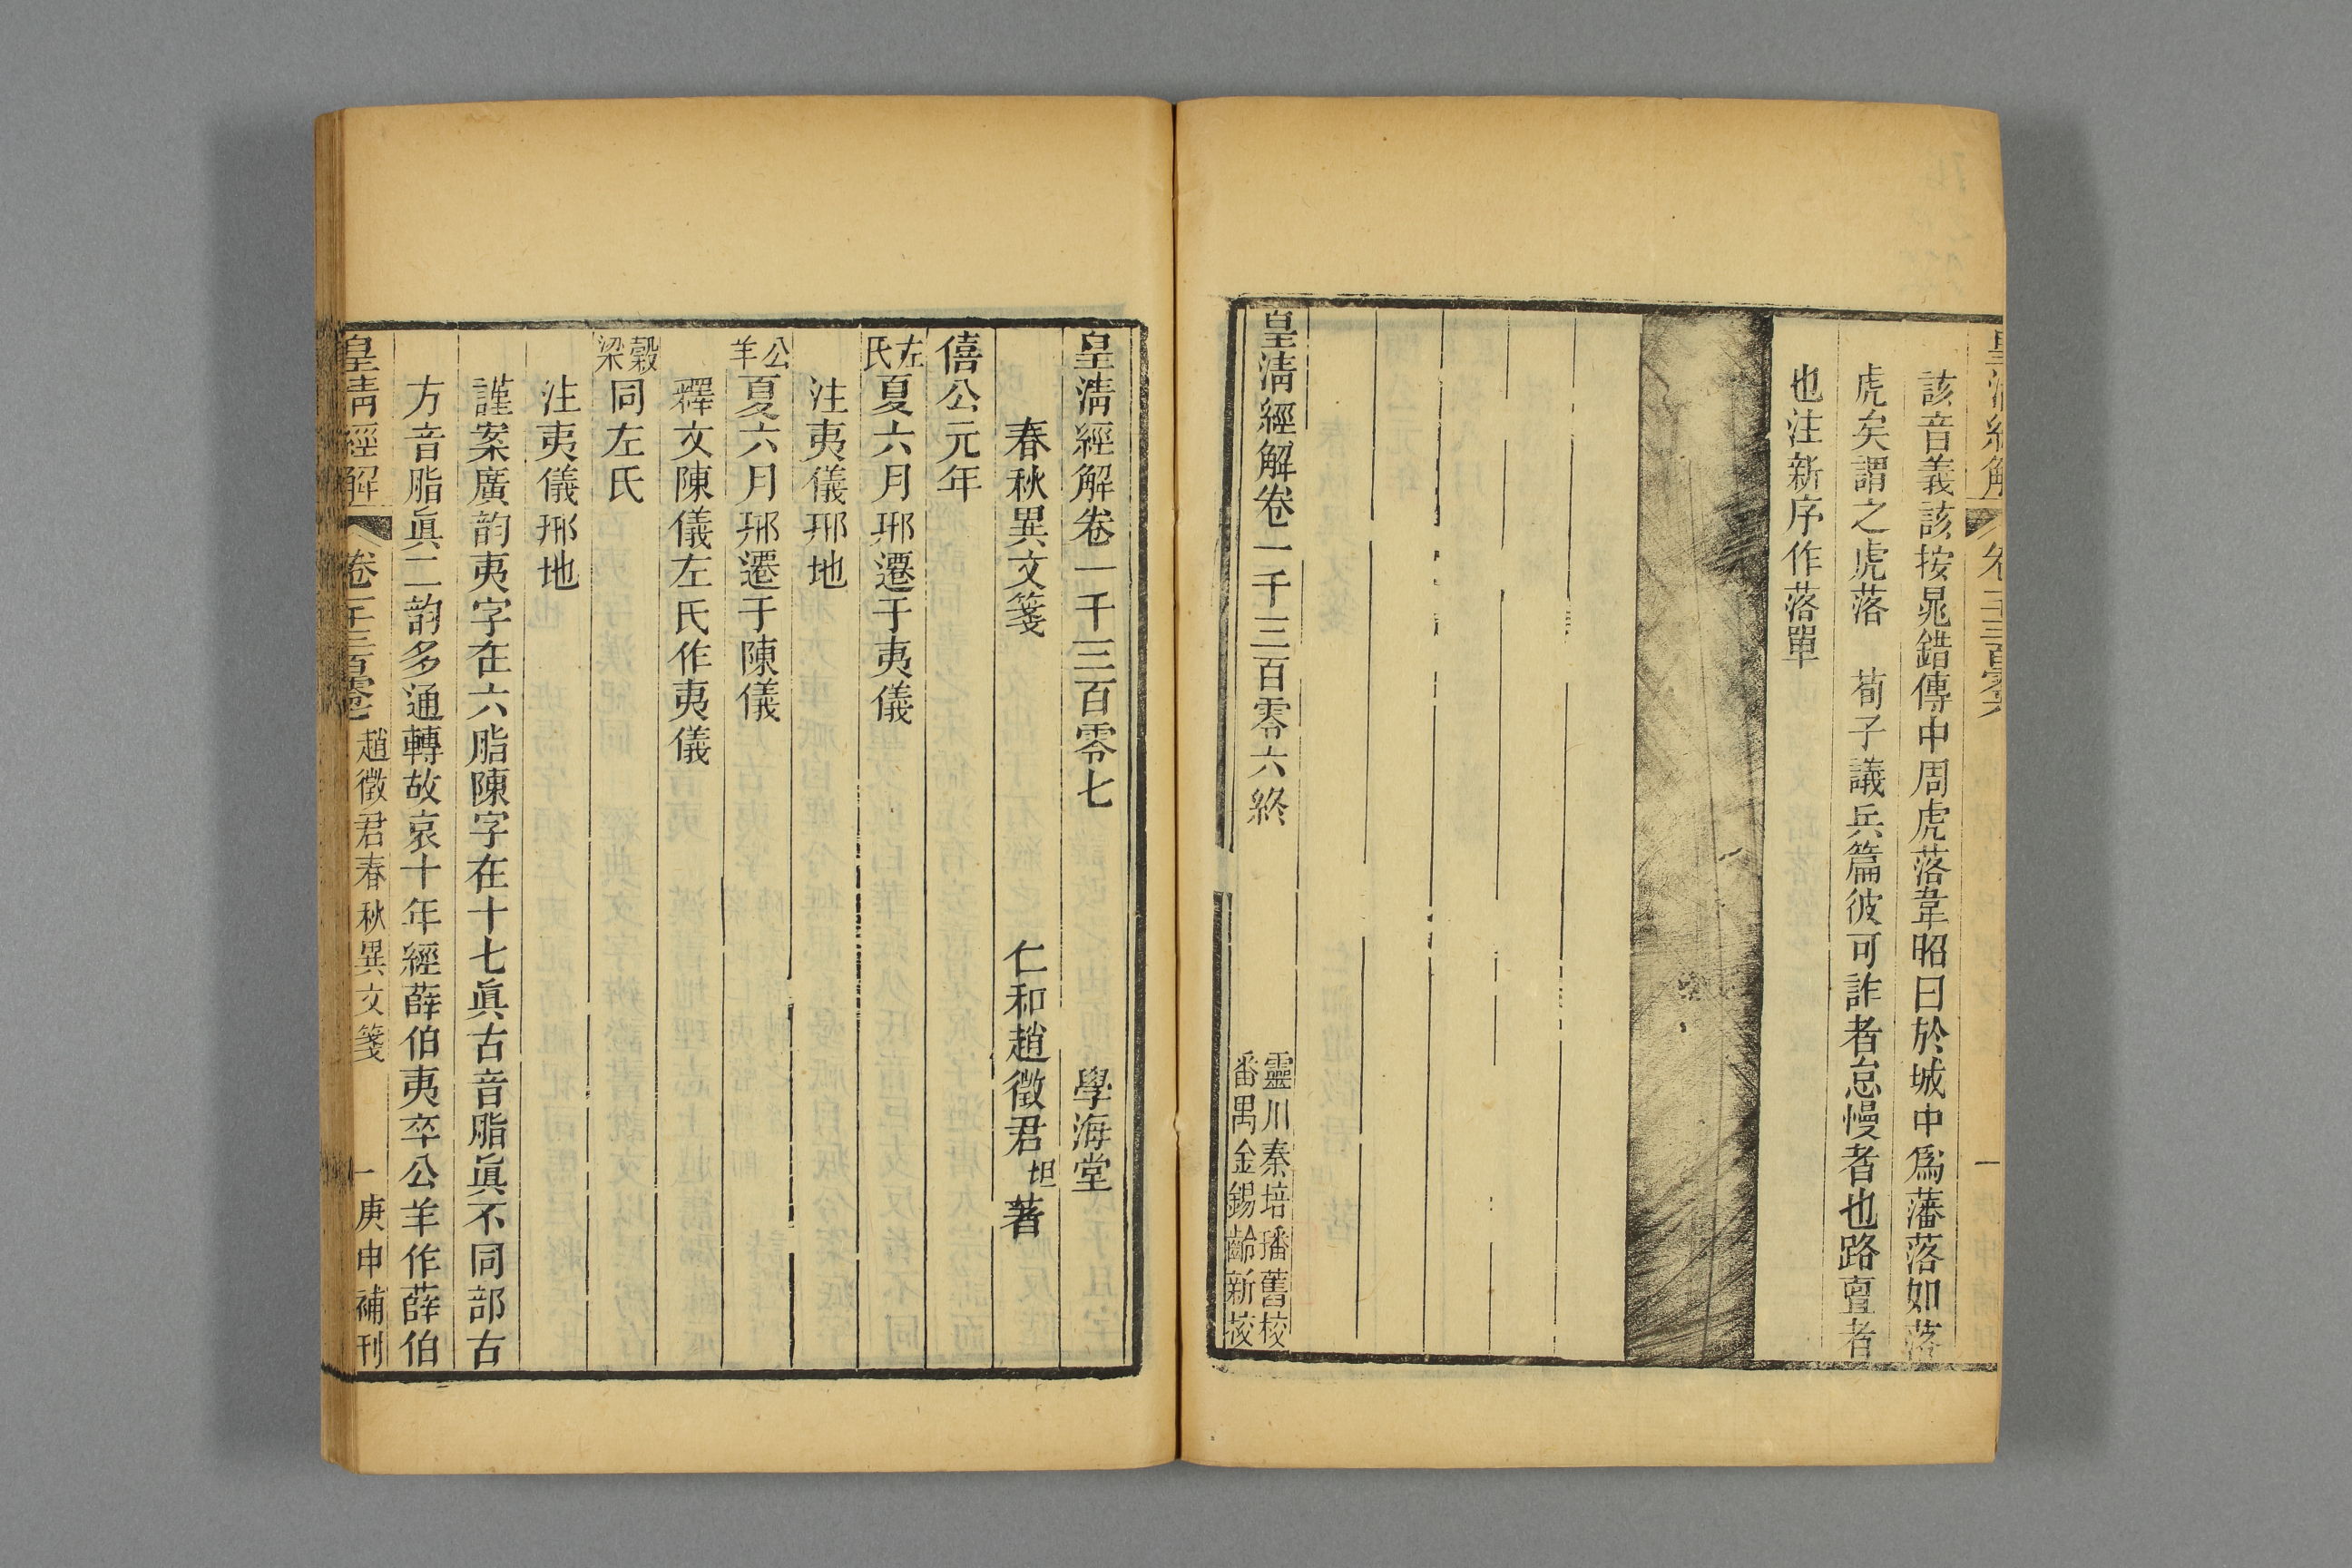 皇清經解 卷一千三百零六 一
該音義該按晁錯傳中周虎落韋昭曰於城中爲藩落如落
虎矣謂之虎落 荀子議兵篇彼可詐者怠慢者也路亶者
也注新序作落單
皇清經解卷一千三百零六終
靈川秦培璠舊校
番禺金錫齡新校
皇清經解卷一千三百零七 學海堂
春秋異文箋 仁和趙徵君坦著
僖公元年
左氏夏六月邢遷于夷儀
注夷儀邢地
公羊夏六月邢遷于陳儀
釋文陳儀左氏作夷儀
穀梁同左氏
注夷儀邢地
謹案廣韵夷字在六脂陳字在十七眞古音脂眞不同部古
方音脂眞二韵多通轉故哀十年經薛伯夷卒公羊作薛伯
皇清經解 卷一千三百零七 趙徵君春秋異文箋 一 庚申補刊